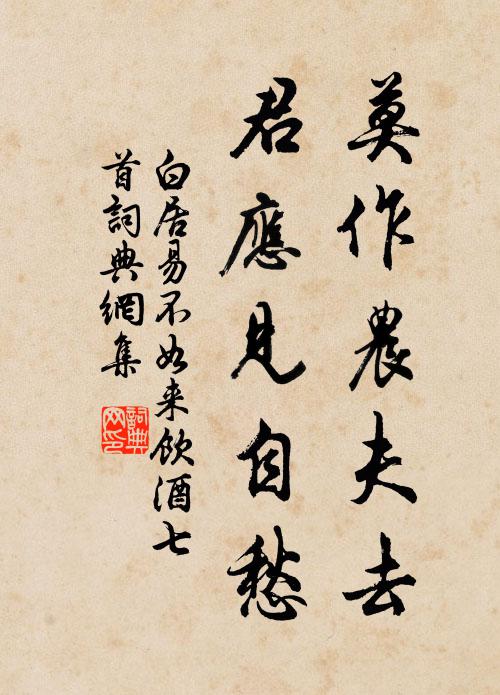 莫作農夫去
君應見自愁
白居易不如来飲酒七
首詞典網集
詞典
网印